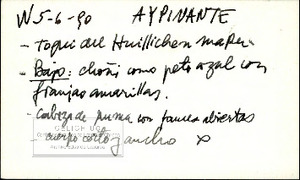 W 5-6-90 AYPINANTE
- Toqui del Huillichen mapu.
- Bajo: choñi como peto azul con
franjas amarillas.
- Cabeza de puma con fauces abiertas
- cuerpo corto y ancho x